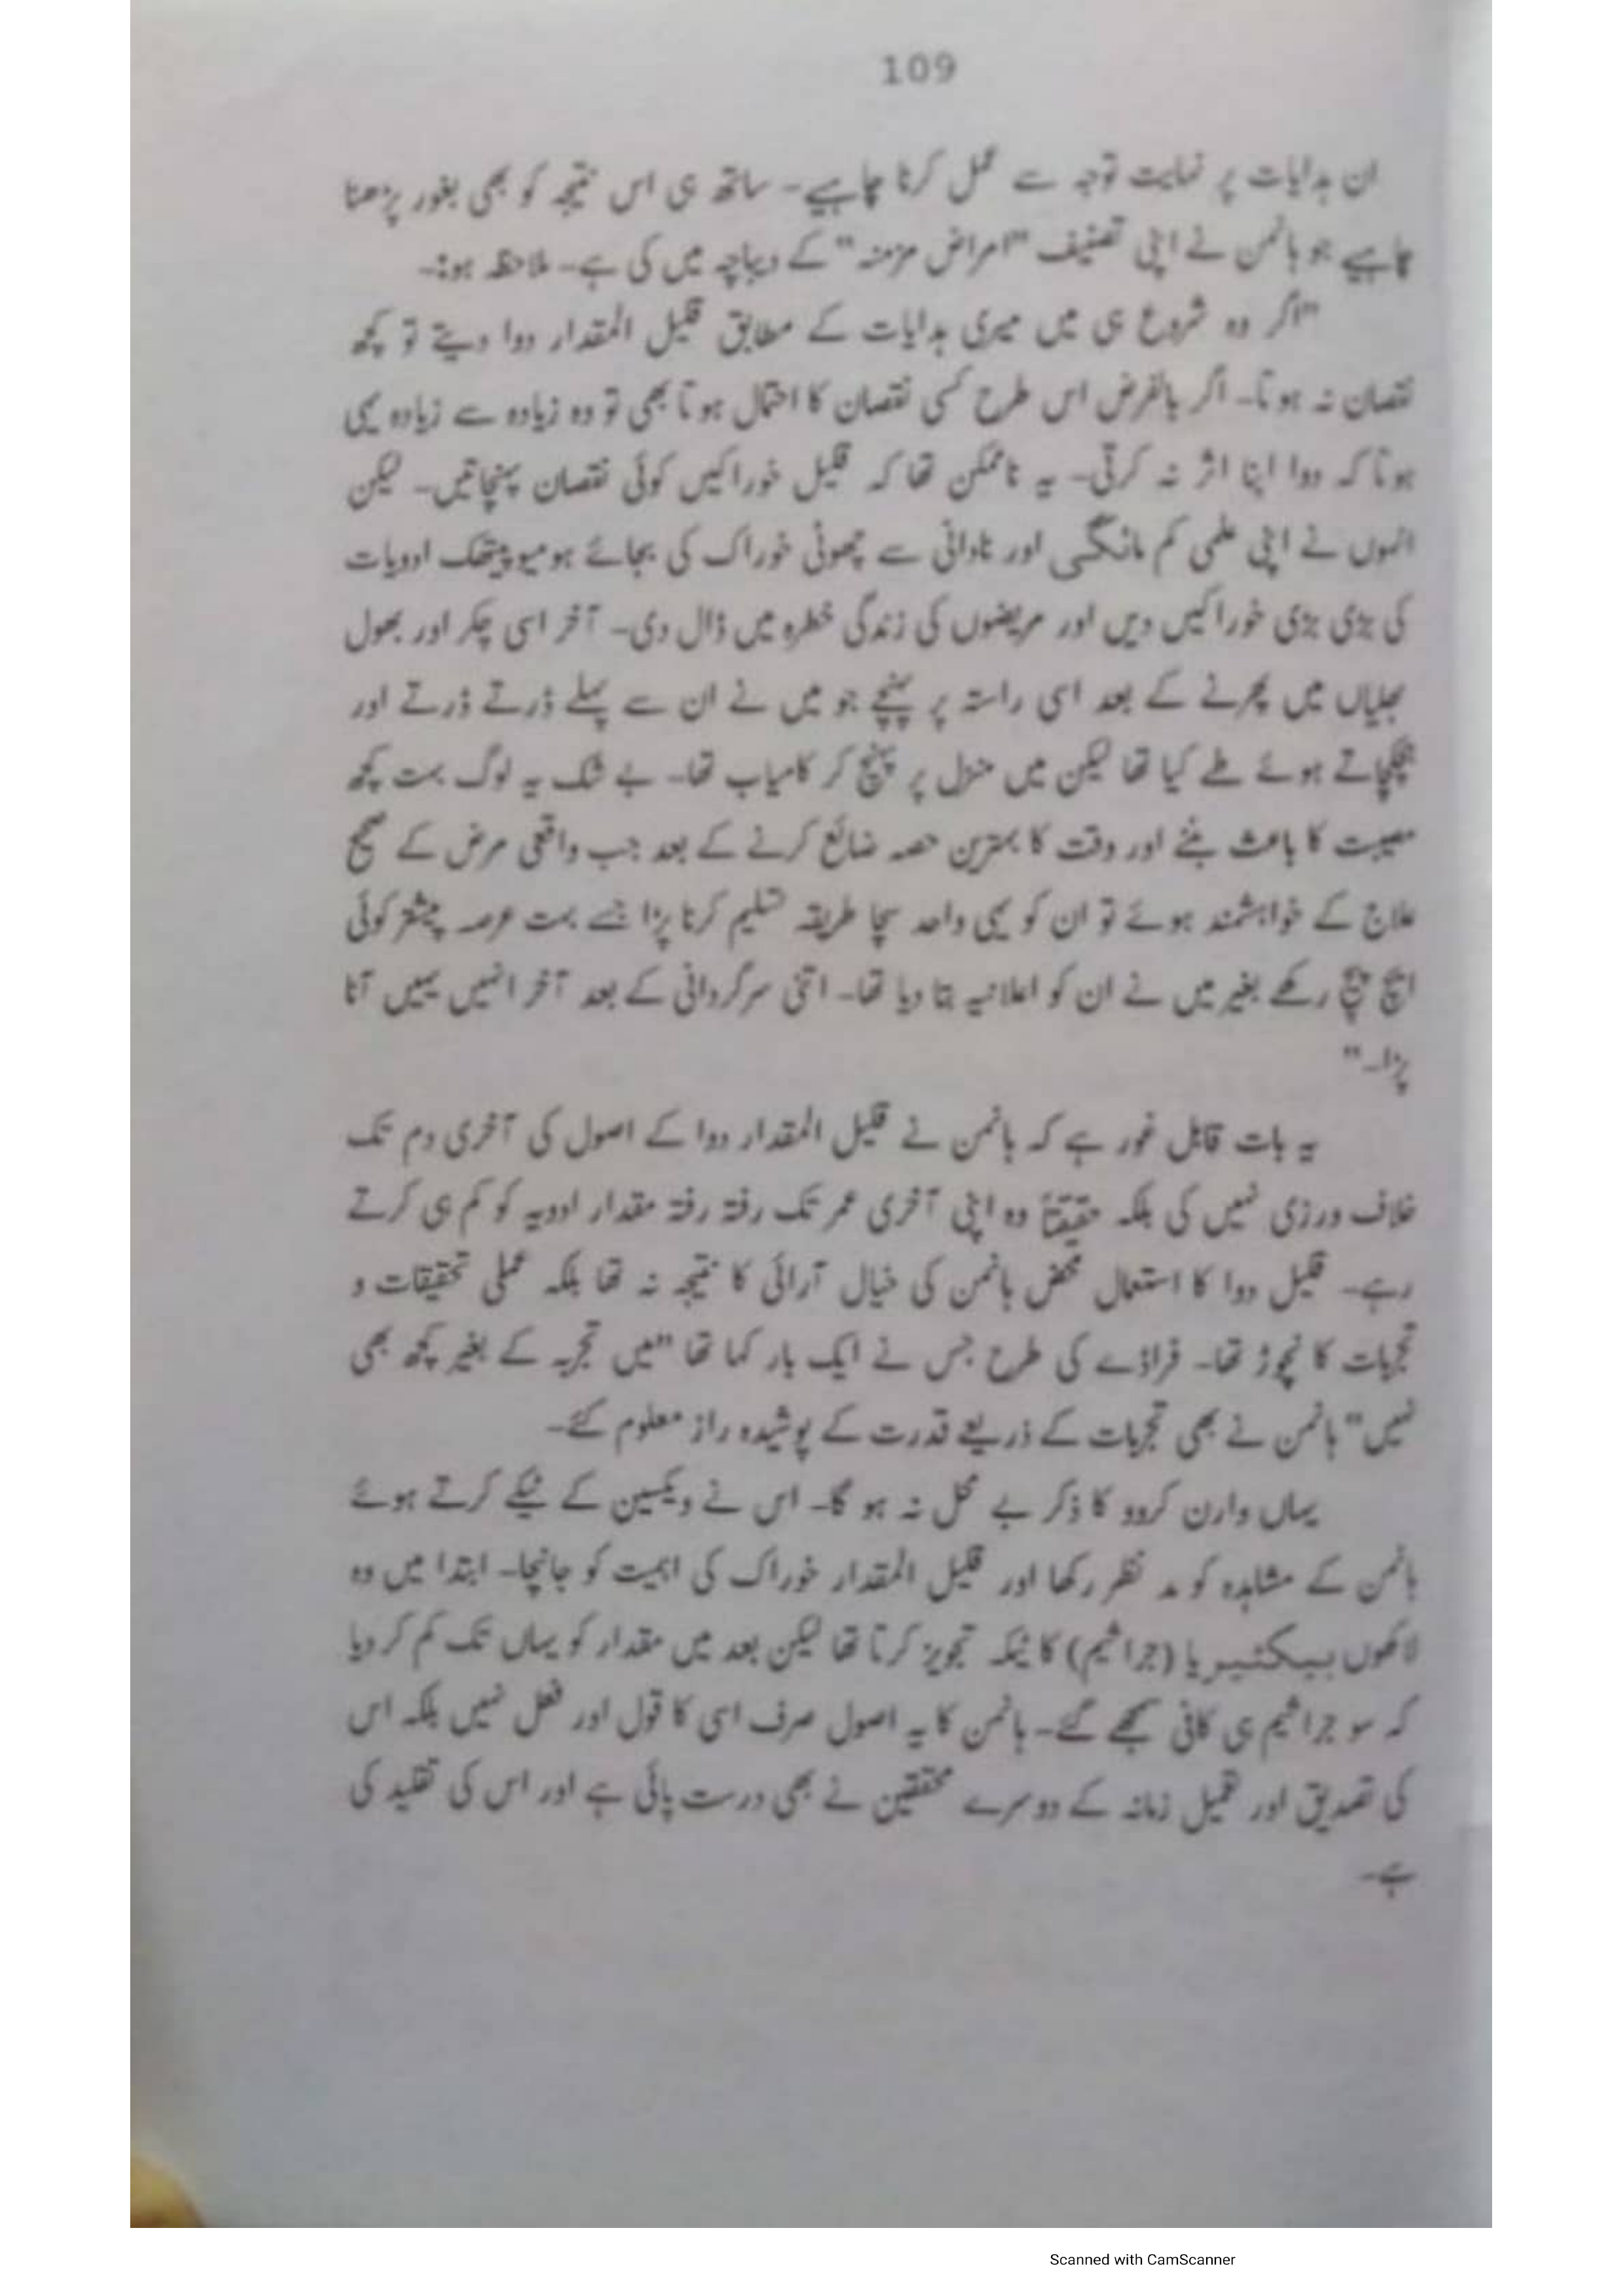 109
ان ہدایات پر نہایت توجہ سے عمل کرنا چاہیے۔ ساتھ ہی اس نتیجہ کو بھی بغور پڑھنا
چاہیے جو ہانمن نے اپنی تصنیف "امراض مزمنہ" کے دیباچہ میں کی ہے۔ ملاحظہ ہو:۔
"اگر وہ شروع ہی میں میری ہدایات کے مطابق قلیل المقدار دوا دیتے تو کچھ
نقصان نہ ہوتا۔ اگر بالفرض اس طرح کسی نقصان کا احتمال ہوتا بھی تو وہ زیادہ سے زیادہ یہی
ہوتا کہ دوا اپنا اثر نہ کرتی۔ یہ ناممکن تھا کہ قلیل خوراکیں کوئی نقصان پہنچاتیں۔ لیکن
انہوں نے اپنی علمی کم مائگی اور نادانی سے چھوٹی خوراک کی بجائے ہومیوپیتھک ادویات
کی بڑی بڑی خوراکیں دیں اور مریضوں کی زندگی خطرہ میں ڈال دی۔ آخر اسی چکر اور بھول
بھلیاں میں پھرنے کے بعد اسی راستہ پر پہنچے جو میں نے ان سے پہلے ڈرتے ڈرتے اور
ہچکچاتے ہوئے طے کیا تھا لیکن میں منزل پر پہنچ کر کامیاب تھا۔ بے شک یہ لوگ بہت کچھ
مصیبت کا باعث بنے اور وقت کا بہترین حصہ ضائع کرنے کے بعد جب واقعی مرض کے صحیح
علاج کے خواہشمند ہوئے تو ان کو یہی واحد سچا طریقہ تسلیم کرنا پڑا جسے بہت عرصہ پیشتر کوئی
ایچ پیچ رکھے بغیر میں نے ان کو اعلانیہ بتا دیا تھا۔ اتنی سرگردانی کے بعد آخر انہیں یہیں آنا
پڑا۔"
یہ بات قابل غور ہے کہ ہانمن نے قلیل المقدار دوا کے اصول کی آخری دم تک
خلاف ورزی نہیں کی بلکہ حقیقتاً وہ اپنی آخری عمر تک رفتہ رفتہ مقدار ادویہ کو کم ہی کرتے
رہے۔ قلیل دوا کا استعمال محض ہانمن کی خیال آرائی کا نتیجہ نہ تھا بلکہ عملی تحقیقات و
تجربات کا نچوڑ تھا۔ فراڈے کی طرح جس نے ایک بار کہا تھا "میں تجربہ کے بغیر کچھ بھی
نہیں" ہانمن نے بھی تجربات کے ذریعے قدرت کے پوشیدہ راز معلوم کئے۔
یہاں وارن کروو کا ذکر بے محل نہ ہو گا۔ اس نے ویکسین کے ٹیکے کرتے ہوئے
ہانمن کے مشاہدہ کو مد نظر رکھا اور قلیل المقدار خوراک کی اہمیت کو جانچا۔ ابتدا میں وہ
لاکھوں بیکٹیریا (جراثیم) کا ٹیکہ تجویز کرتا تھا لیکن بعد میں مقدار کو یہاں تک کم کر دیا
کہ سو جراثیم ہی کافی سمجھے گئے۔ ہانمن کا یہ اصول صرف اسی کا قول اور فعل نہیں بلکہ اس
کی تصدیق اور تعمیل زمانہ کے دوسرے محققین نے بھی درست پائی ہے اور اس کی تقلید کی
ہے۔
Scanned with CamScanner